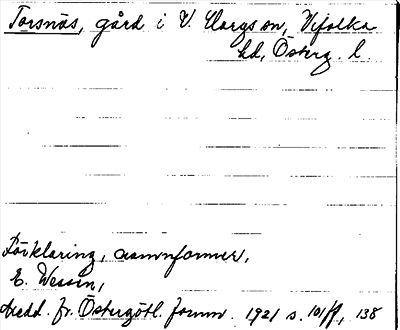 Torsnäs, gård i V. Hargs sn, Vifolka
hd, Österg. l.
Förklaring, namnformer,
E. Wessén,
Medd. fr. Östergötl. fornm. 1921 s. 101 ff, 138